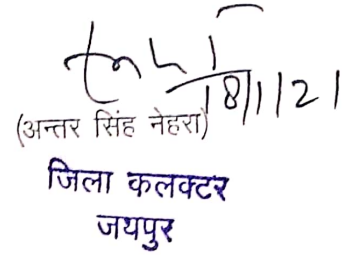 18/1/21
(अन्तर सिंह नेहरा)
जिला कलक्टर
जयपुर